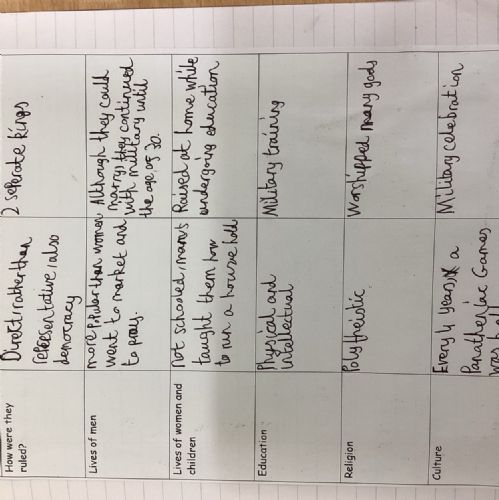 How were they
ruled?
Direct, rather than
representative, also
democracy
2 seperate kings
Lives of men
more p than women
went to market and
to pray.
Although they could
marry, they continued
with military until
the age of 30.
Lives of women and
children
not schooled, mams
taught them how
to run a house hold
Raised at home while
undergoing education
Education
Physical and
intellectual
Military training
Religion
Polytheistic
Worshipped many gods
Culture
Every 4 years a
Panathen'aic Games
was
Military celebration